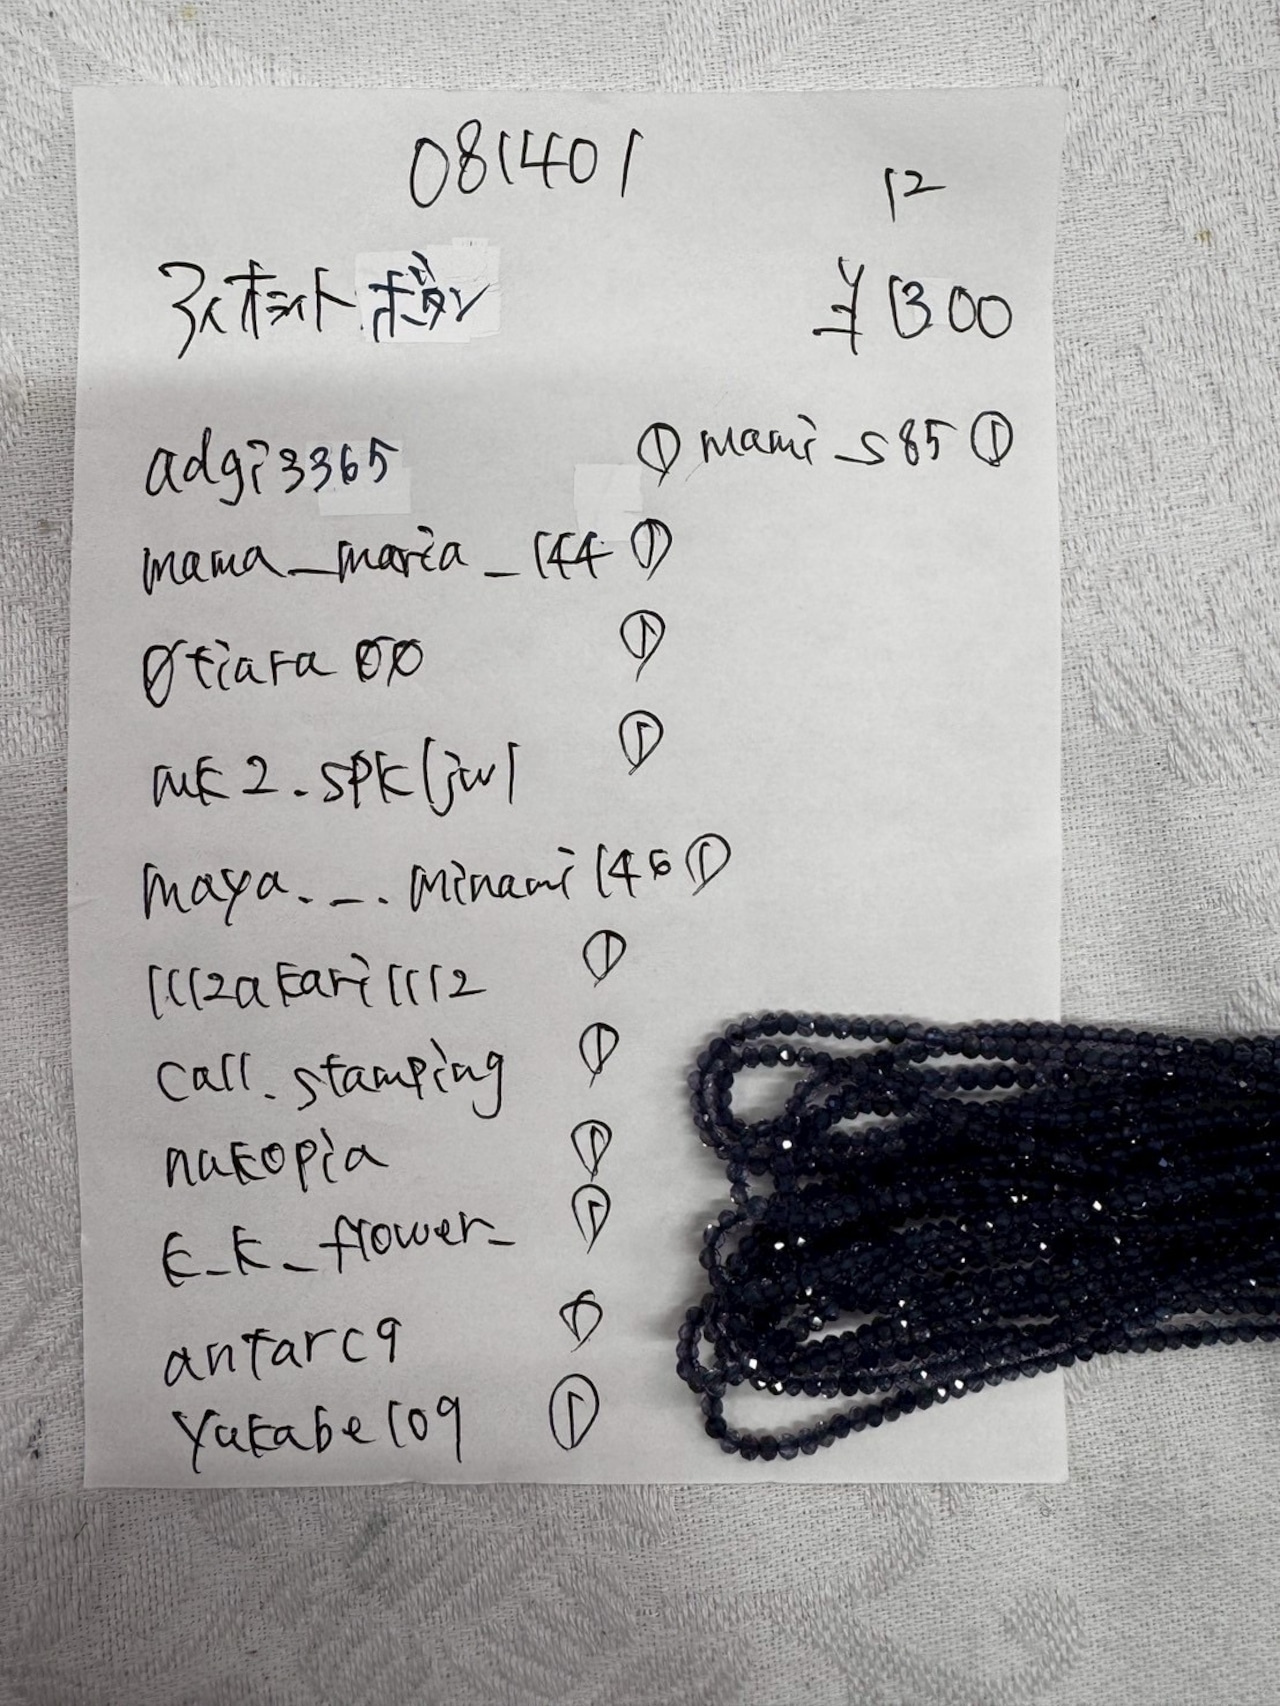 081401
12
アイオライト ボタン
¥1300
adgi3365 ①
mami_s85 ①
mama_maria_144 ①
0tiara00 ①
mk2.spkljwl ①
maya._.minami146 ①
1112akari1112 ①
call.stamping ①
nakopia ①
k_k_flower_ ①
antarc9 ①
yukabe109 ①